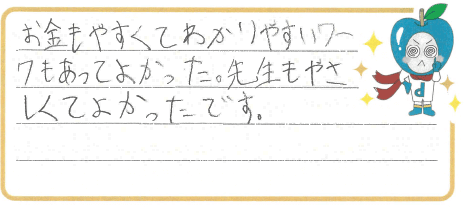 お金もやすくてわかりやすいワー
クもあってよかった。先生もやさ
しくてよかったです。
d